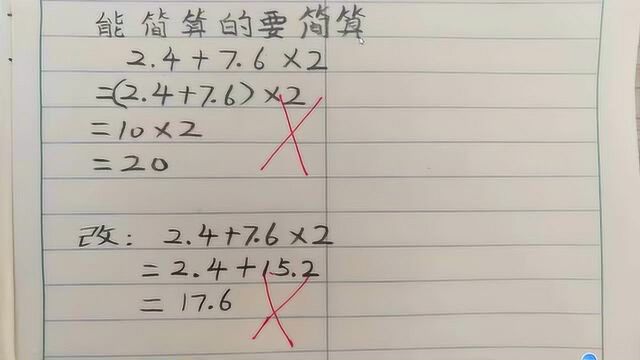 能简算的要简算
2.4+7.6×2
=(2.4+7.6)×2
=10×2
=20
改: 2.4+7.6×2
=2.4+15.2
=17.6